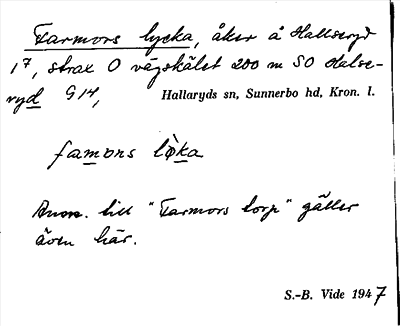 Farmors lycka, åker å Hallseryd
1⁷, strax O vägskälet 200 m SO Halse-
ryd G14, Hallaryds sn, Sunnerbo hd, Kron. l.
famons lỳka
Anm. till "Farmors torp" gäller
även här.
S.-B. Vide 1947